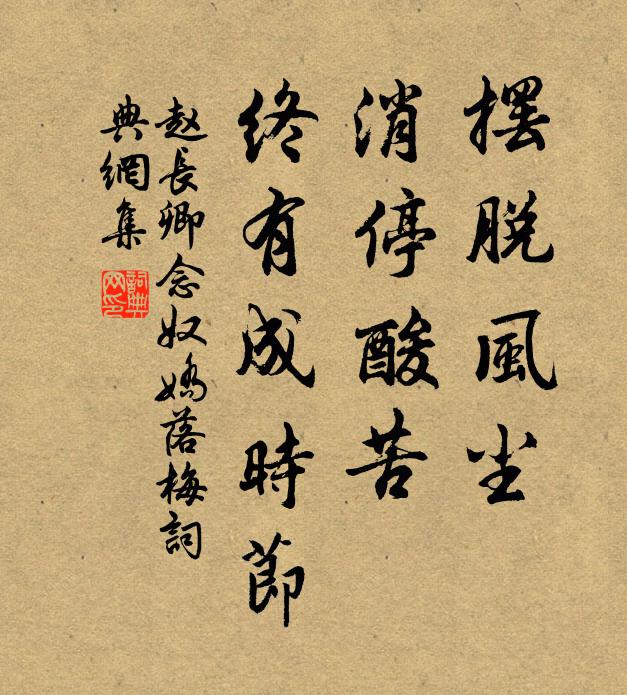 摆脱風尘
消停酸苦
终有成時節
赵長卿念奴嬌落梅詞
典網集
詞典网印